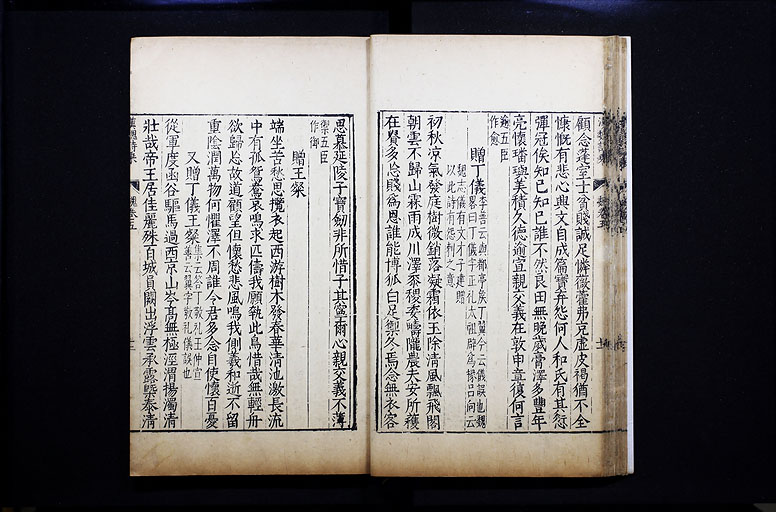 顧念蓬室士貧賤誠足憐薇藿弗充虛皮褐猶不全
慷慨有悲心興文自成篇寶弃怨何人和氏有其愆
彈冠俟知己知己誰不然良田無晚歲膏澤多豐年
亮懷璠璵美積久德逾宣親交義在敦申章復何言
逾五臣
作愈
贈丁儀
初秋涼氣發庭樹微銷落凝霜依玉除清風飄飛閣
朝雲不歸山霖雨成川澤黍稷委疇隴農夫安所穫
在貴多忘賤為恩誰能博狐白足禦冬焉念無衣客
思慕延陵子寶劒非所惜子其寧爾心親交義不薄
禦五臣
作御
贈王粲
端坐苦愁思攬衣起西游樹木發春華清池激長流
中有孤鴛鴦哀鳴求匹儔我願執此鳥惜哉無輕舟
欲歸忘故道顧望但懷愁悲風鳴我側羲和逝不留
重陰潤萬物何懼澤不周誰令君多念自使懷百憂
又贈丁儀王粲
集云荅丁敬礼王仲宣
善云翼字敬礼儀誤也
從軍度函谷驅馬過西京山岑高無極涇渭揚濁清
壯哉帝王居佳麗殊百城員闕出浮雲承露槩泰清